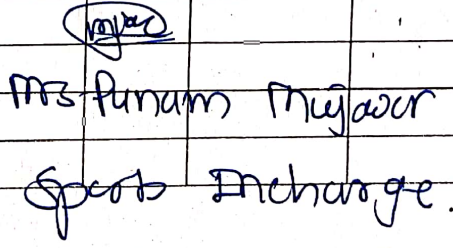 Ms Punam Mujawar
Sports Incharge.